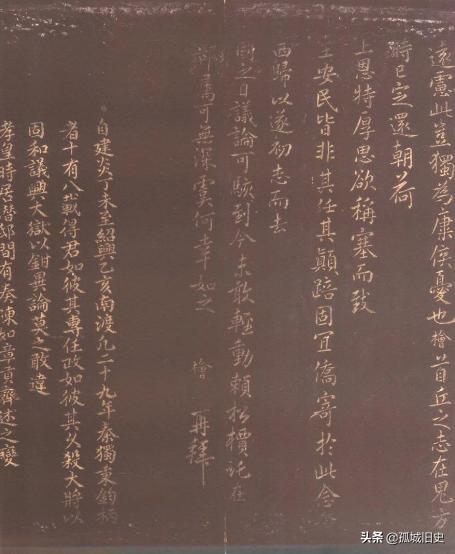 遠慮此豈獨為康侯憂也檜首丘之志在鬼方
時已定還朝荷
上恩特厚思欲稱塞而致
主安民皆非其任其顛踣固宜僑寄於此念
西歸以遂初志而去
國之日議論可駭到今未敢輕動賴松檟託在
鄉寓可無深虞何幸如之 檜 再拜
自建炎丁未至紹興乙亥南渡凡二十九年秦獨秉鈞柄
者十有八載得君如彼其專任政如彼其久殺大將以
固和議興大獄以鉗異論莫之敢違
孝皇時居普邸間有奏陳如章貢齊述之變
头条 @孤城旧史